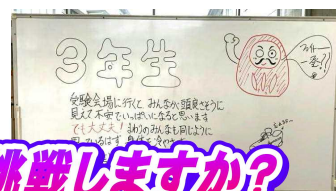 3年生
ファイト一番!!
受験会場に行くと、みんなが頭良さそうに
見えて不安でいっぱいになると思います
でも大丈夫！まわりのみんなも同じように
挑戦しますか？